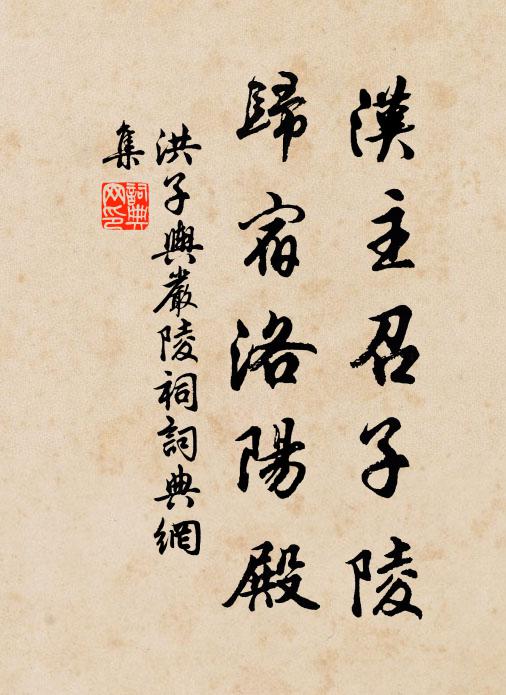 漢主召子陵
歸宿洛陽殿
洪子輿嚴陵祠詞典網
集
詞典
网印